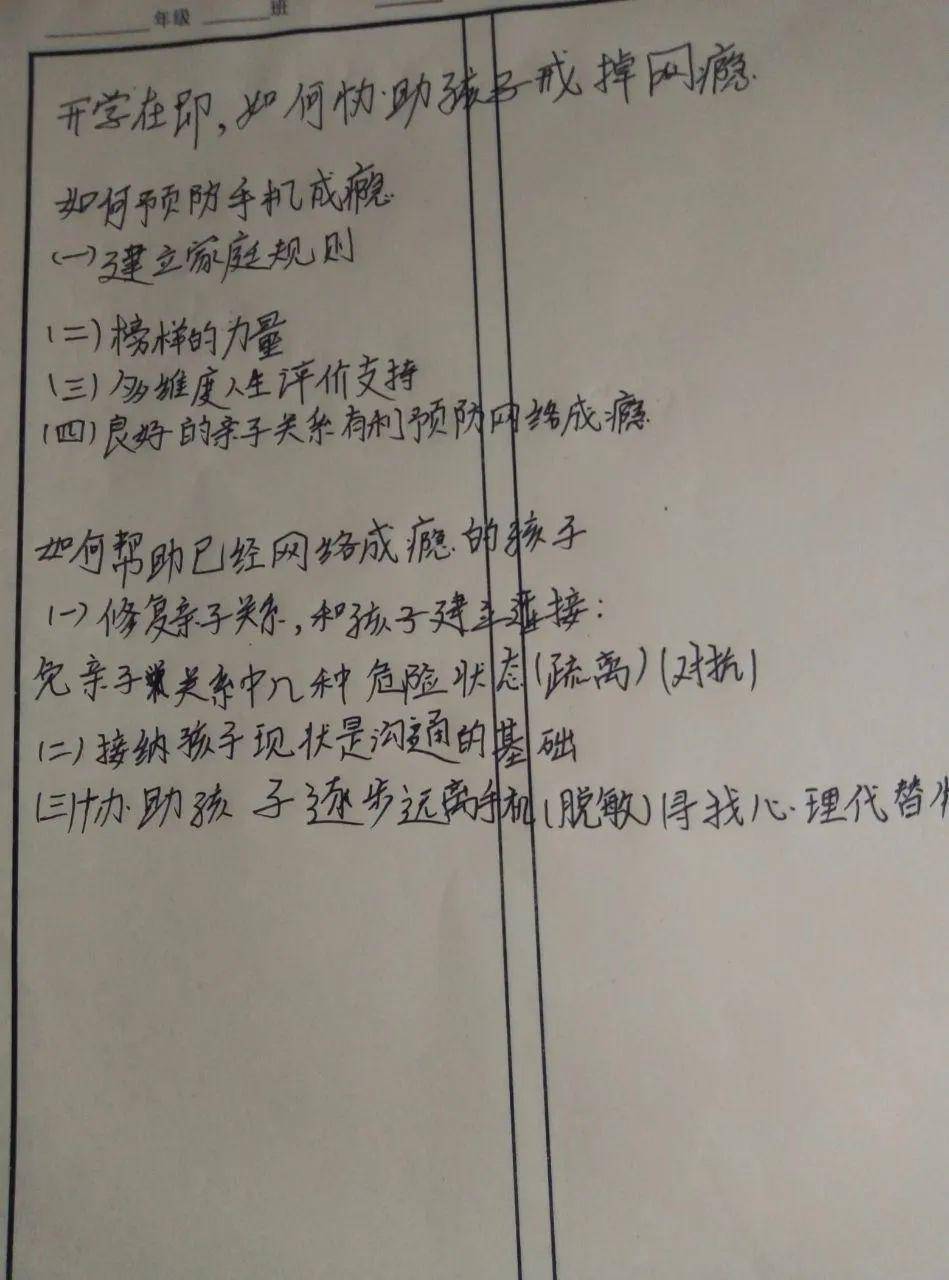 年级 班
开学在即,如何协助孩子戒掉网瘾
如何预防手机成瘾
(一)建立家庭规则
(二)榜样的力量
(三)多维度人生评价支持
(四)良好的亲子关系有利预防网络成瘾
如何帮助已经网络成瘾的孩子
(一)修复亲子关系,和孩子建立连接:
免亲子关系中几种危险状态(疏离)(对抗)
(二)接纳孩子现状是沟通的基础
(三)协助孩子逐步远离手机(脱敏)寻找心理代替